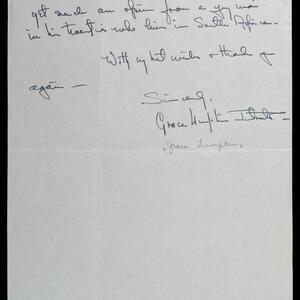 get such an opinion from a young man
in his twenties who lives in South Africa.
With my best wishes & thank you
again —
Sincerely,
Grace Lumpkin
Grace Lumpkin